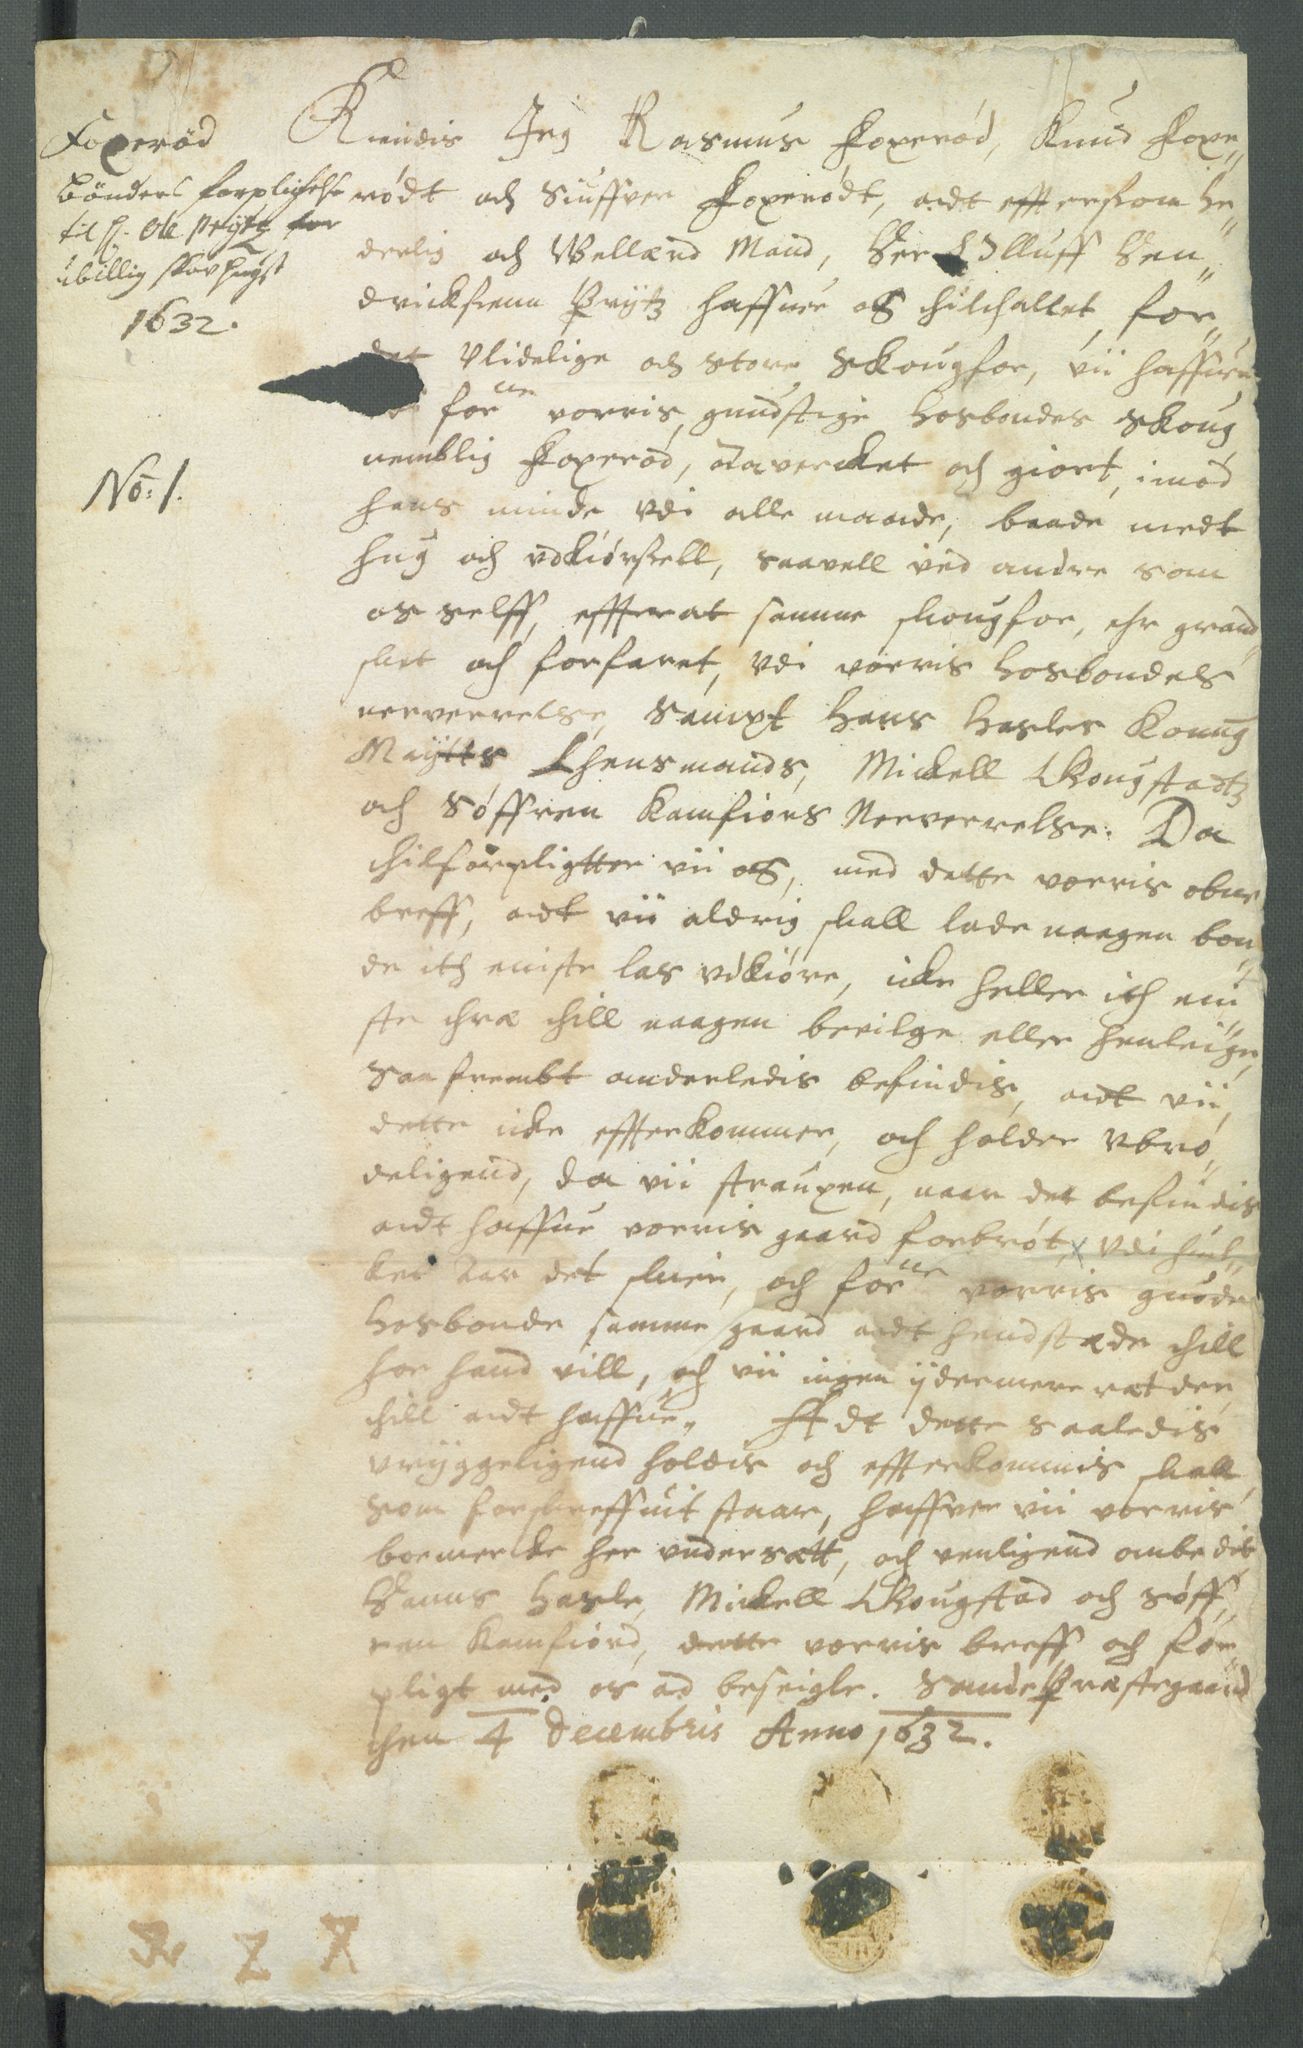 Foxerød
Bønders forpligtelse
til H. Ole Prytz for
ubillig skovhugst
1632.
No: 1.
Kiendis Jeg Rasmus Foxerød, Knud Foxe„
rødt och Siuffver Foxerødt, adt effterssom he„
derlig och Vellærd Mand, Her Olluff Hen„
dricksenn Prÿtz haffuer oß thilthallet, for„
det Vlidelige och store Skougfor, vii haffuer
for ne vorris gunstige Hosbondes Skoug
nemblig Foxerød, adaverchet och giort, imod
hans minde vdi alle maade, baade medt
hug och vdkiørssell, saavell ved andre som
os selff, effterat samme skougfor, ehr grand„
sket och forfaret, vdi vorris Hosbondes
nerverrelse, Sampt Hans Hasles Konng
Maÿtts Lhensmands, Mickell Rougstadtz
och Søffren Kamfiors Nerverrelse. Da
thilforpligtter vii oß, med dette vorris obne
breff, adt vii aldrig skall lade naagen bon„
de ith eniste las vdkiøre, icke heller ith eni„
ste thræ thill naagen bevilge eller henleige,
Saa frembt anderledis befindis, adt vii,
dette icke effterkommer, och holder Vbrø„
deligend, da vii straxen, naar det befindis
adt haffue vorris gaard forbrøt, x vdi huil„
ket Aar det skeer, och for ne vorris gunstige
Hosbonde samme gaard adt hendstæde thill
hor hand vill, och vii ingen ÿdermere ræt der
thill adt haffue„ Adt dette saaledis
vrÿggeligend holdis och effterkommis skall
som forskreffuit staar, haffver vii vorris
boemercke her vndersatt, och venligend ombedit
Hanns Hasle, Mickell Rougstad och Søff„
ren Kamfiord, dette vorris breff och for„
pligt med os ad beseigle. Sande Præstegaard
then 4 Decembris Anno 1632.